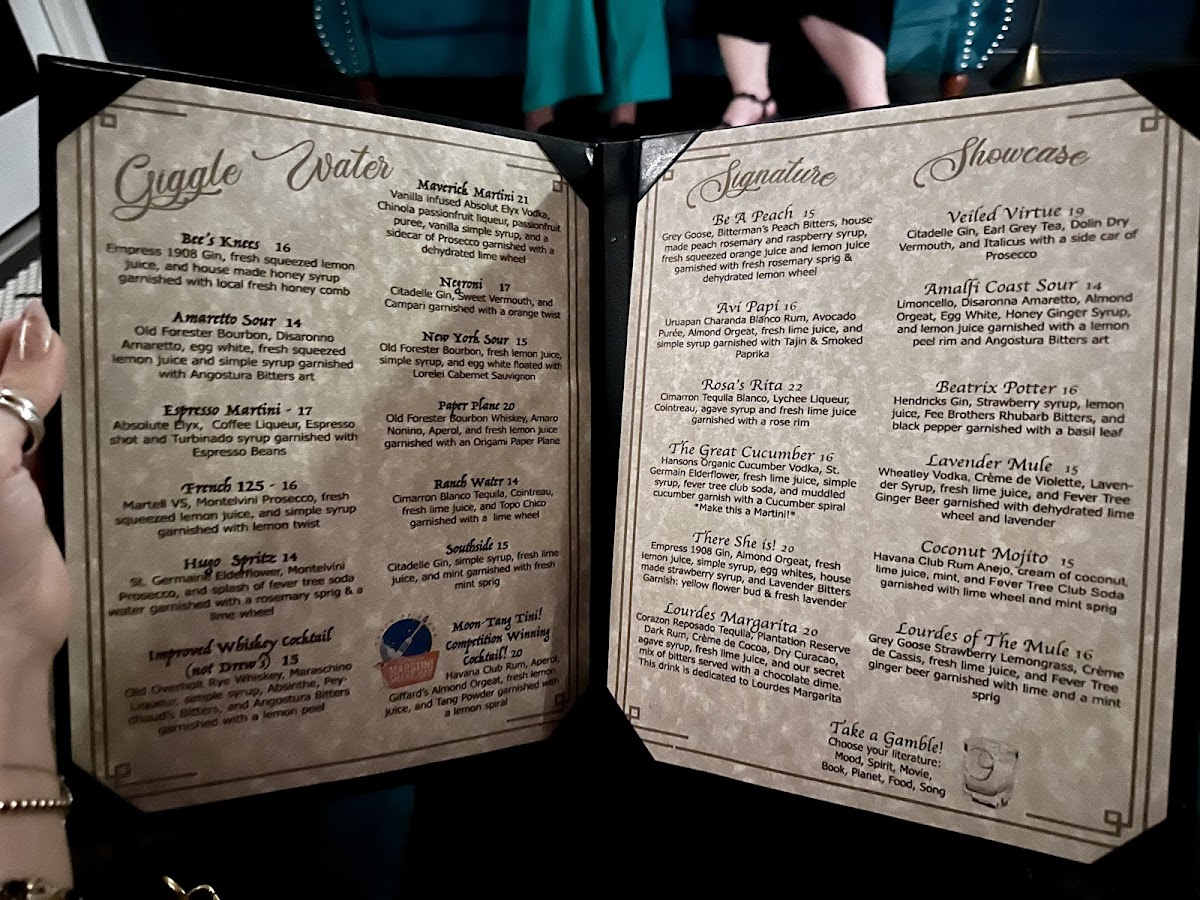 Giggle Water
Bee's Knees 16
Empress 1908 Gin, fresh squeezed lemon
juice, and house made honey syrup
garnished with local fresh honey comb
Amaretto Sour 14
Old Forester Bourbon, Disaronno
Amaretto, egg white, fresh squeezed
lemon juice and simple syrup garnished
with Angostura Bitters art
Espresso Martini - 17
Absolute Elyx, Coffee Liqueur, Espresso
shot and Turbinado syrup garnished with
Espresso Beans
French 125 - 16
Martell VS, Montelvini Prosecco, fresh
squeezed lemon juice, and simple syrup
garnished with lemon twist
Hugo Spritz 14
St. Germaine Elderflower, Montelvini
Prosecco, and splash of fever tree soda
water garnished with a rosemary sprig & a
lime wheel
Improved Whiskey Cocktail
(not Drew's) 15
Old Overholt Rye Whiskey, Maraschino
Liqueur, simple syrup, Absinthe, Pey-
chaud's Bitters, and Angostura Bitters
garnished with a lemon peel
Maverick Martini 21
Vanilla infused Absolut Elyx Vodka,
Chinola passionfruit liqueur, passionfruit
puree, vanilla simple syrup, and a
sidecar of Prosecco garnished with a
dehydrated lime wheel
Negroni 17
Citadelle Gin, Sweet Vermouth, and
Campari garnished with a orange twist
New York Sour 15
Old Forester Bourbon, fresh lemon juice,
simple syrup, and egg white floated with
Lorelei Cabernet Sauvignon
Paper Plane 20
Old Forester Bourbon Whiskey, Amaro
Nonino, Aperol, and fresh lemon juice
garnished with an Origami Paper Plane
Ranch Water 14
Cimarron Blanco Tequila, Cointreau,
fresh lime juice, and Topo Chico
garnished with a lime wheel
Southside 15
Citadelle Gin, simple syrup, fresh lime
juice, and mint garnished with fresh
mint sprig
Moon-Tang Tini!
Competition Winning
Cocktail! 20
Havana Club Rum, Aperol,
Giffard's Almond Orgeat, fresh lemon
juice, and Tang Powder garnished with
a lemon spiral
Signature
Be A Peach 15
Grey Goose, Bitterman's Peach Bitters, house
made peach rosemary and raspberry syrup,
fresh squeezed orange juice and lemon juice
garnished with fresh rosemary sprig &
dehydrated lemon wheel
Avi Papi 16
Uruapan Charanda Blanco Rum, Avocado
Purée, Almond Orgeat, fresh lime juice, and
simple syrup garnished with Tajin & Smoked
Paprika
Rosa's Rita 22
Cimarron Tequila Blanco, Lychee Liqueur,
Cointreau, agave syrup and fresh lime juice
garnished with a rose rim
The Great Cucumber 16
Hansons Organic Cucumber Vodka, St.
Germain Elderflower, fresh lime juice, simple
syrup, fever tree club soda, and muddled
cucumber garnish with a Cucumber spiral
*Make this a Martini!*
There She is! 20
Empress 1908 Gin, Almond Orgeat, fresh
lemon juice, simple syrup, egg whites, house
made strawberry syrup, and Lavender Bitters
Garnish: yellow flower bud & fresh lavender
Lourdes Margarita 20
Corazon Reposado Tequila, Plantation Reserve
Dark Rum, Crème de Cocoa, Dry Curacao,
agave syrup, fresh lime juice, and our secret
mix of bitters served with a chocolate dime.
This drink is dedicated to Lourdes Margarita
Showcase
Veiled Virtue 19
Citadelle Gin, Earl Grey Tea, Dolin Dry
Vermouth, and Italicus with a side car of
Prosecco
Amalfi Coast Sour 14
Limoncello, Disaronna Amaretto, Almond
Orgeat, Egg White, Honey Ginger Syrup,
and lemon juice garnished with a lemon
peel rim and Angostura Bitters art
Beatrix Potter 16
Hendricks Gin, Strawberry syrup, lemon
juice, Fee Brothers Rhubarb Bitters, and
black pepper garnished with a basil leaf
Lavender Mule 15
Wheatley Vodka, Crème de Violette, Laven-
der Syrup, fresh lime juice, and Fever Tree
Ginger Beer garnished with dehydrated lime
wheel and lavender
Coconut Mojito 15
Havana Club Rum Anejo, cream of coconut,
lime juice, mint, and Fever Tree Club Soda
garnished with lime wheel and mint sprig
Lourdes of The Mule 16
Grey Goose Strawberry Lemongrass, Crème
de Cassis, fresh lime juice, and Fever Tree
ginger beer garnished with lime and a mint
sprig
Take a Gamble!
Choose your literature:
Mood, Spirit, Movie,
Book, Planet, Food, Song
9